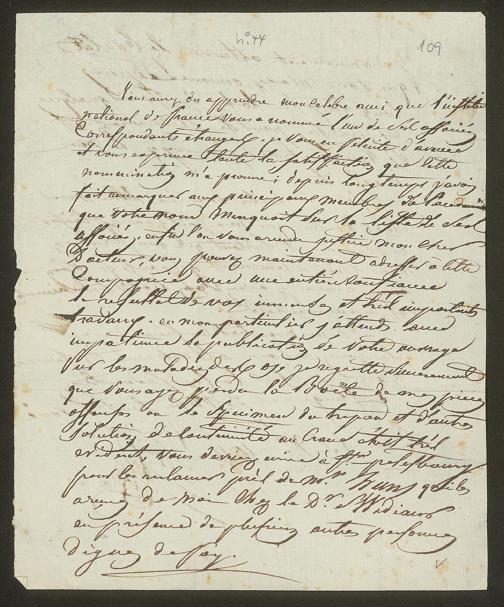 n.° 44
109
Vous aurez du apprendre mon celebre ami que l'institut
national de france vous a nommé l'un de ses associés
Correspondants etrangers, je vous en felicite d'avance
et vous exprime toute la satisfaction que cette
nomination m'a prouvé; depuis longtemps j'avois
fait remarquer aux principaux membres de l'academie
que votre nom manquoit sur la liste de ses
associés, enfin l'on vous a rendu justice mon cher
Docteur, vous pouvez maintenant adresser à cette
Compagnie avec une entiere confiance
le resultat de vos immenses et très importants
travaux. en mon particulier j'attends avec
impatience la publication de votre ouvrage
sur les maladies des os je regrette sincerement
que vous ayez perdu la Boëte de mes pieces
osseuses ou le specimen du trepan et d'autres
solutions de continuité au Crane etoit très
evident, vous devriez ecrire à
pour les reclamer près de Mr. qui les
a de moi chez le Dr.
en presence de plusieurs autres personnes
dignes de foy.